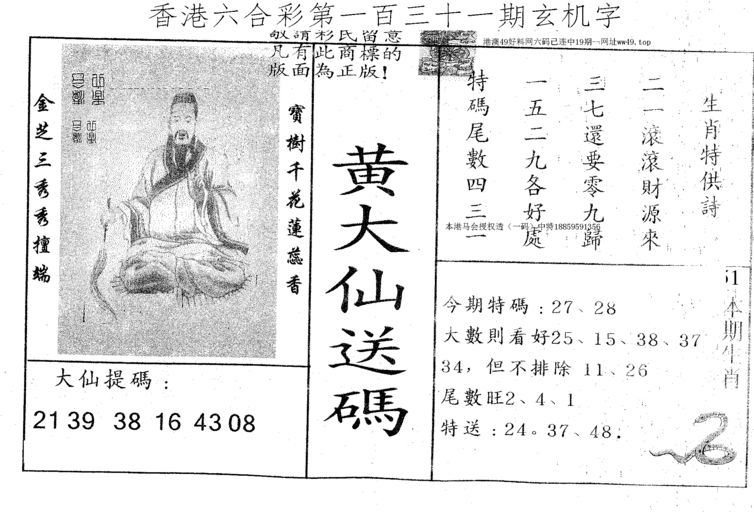 香港六合彩第一百三十一期玄机字
敬請彩民留意
凡有此商標的
版面為正版!
港澳49好料网六码已连中19期一网址ww49.top
金芝三秀秀擅端
寶樹千花蓮蕊香
黃大仙送碼
大仙提碼:
21 39 38 16 43 08
生肖特供詩
二一滾滾財源來
三七還要零九歸
一五二九各好處
特碼尾數四三一
本港马会授权透(一码)中特18859591356
今期特碼:27、28
大數則看好25、15、38、37
34,但不排除 11、26
尾數旺2、4、1
特送:24。37、48.
本期生肖